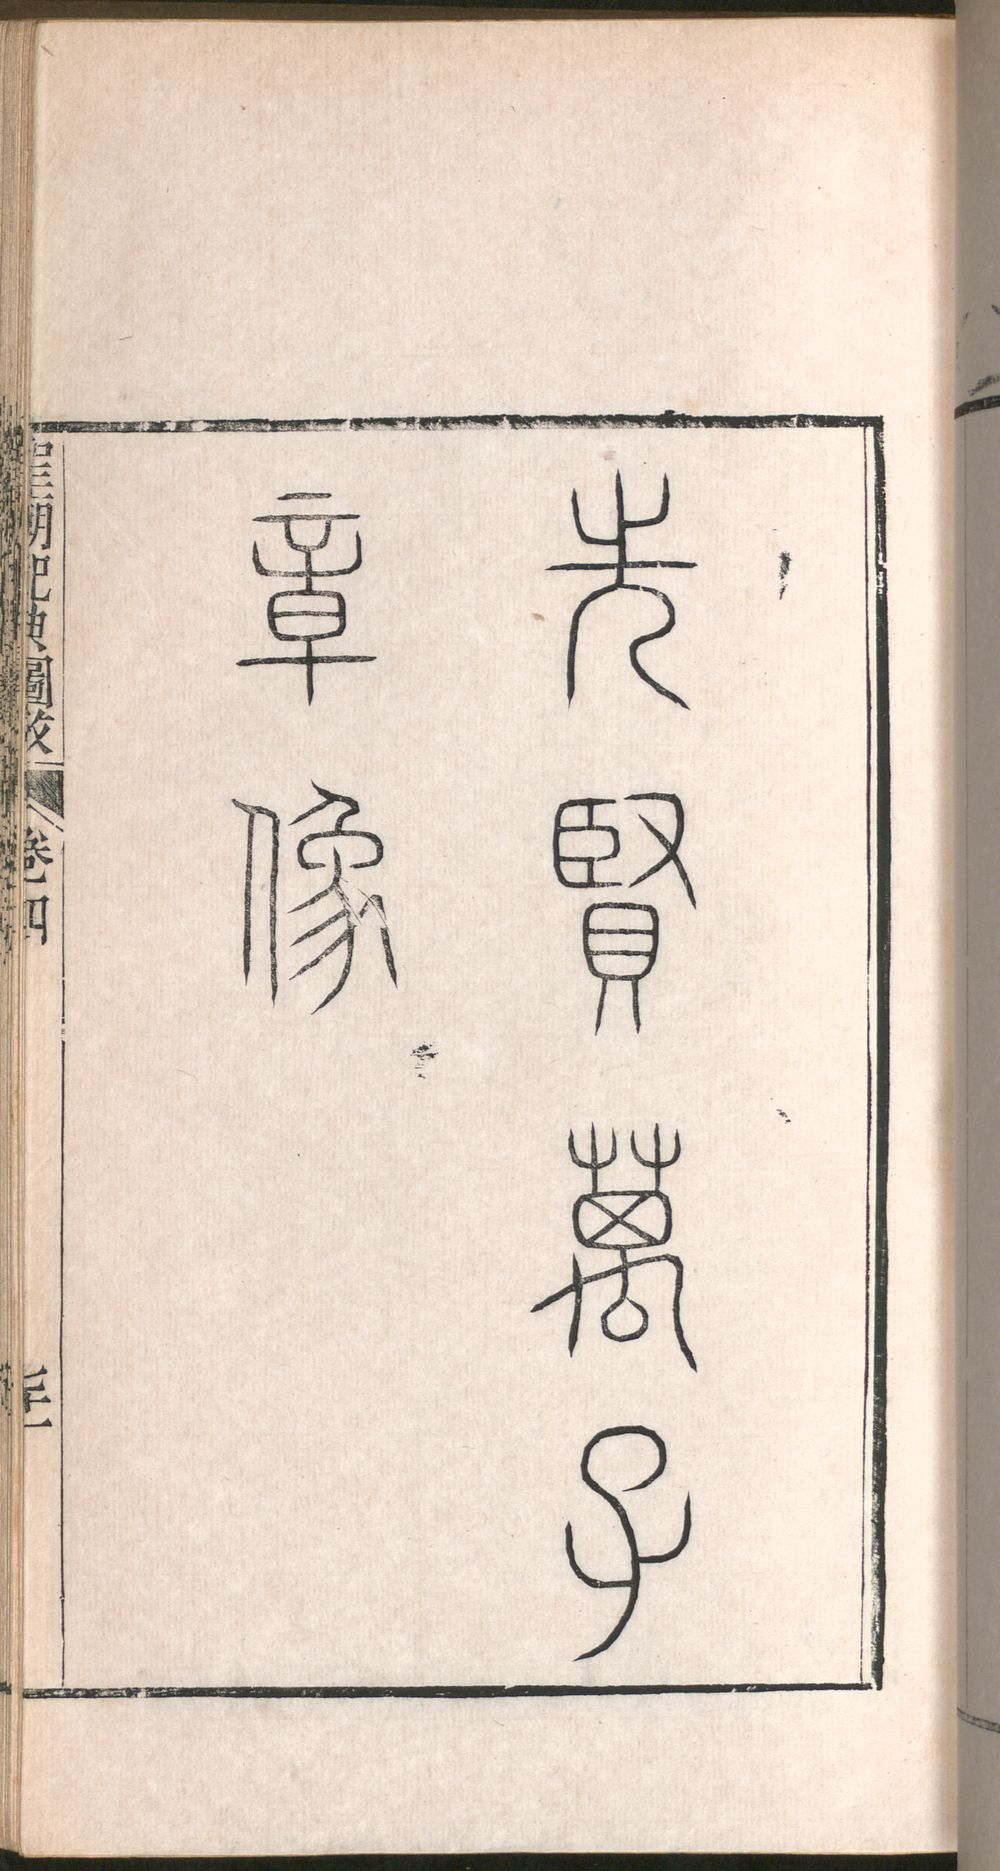 先賢萬子
章像
聖朝祀典圖攷
卷四